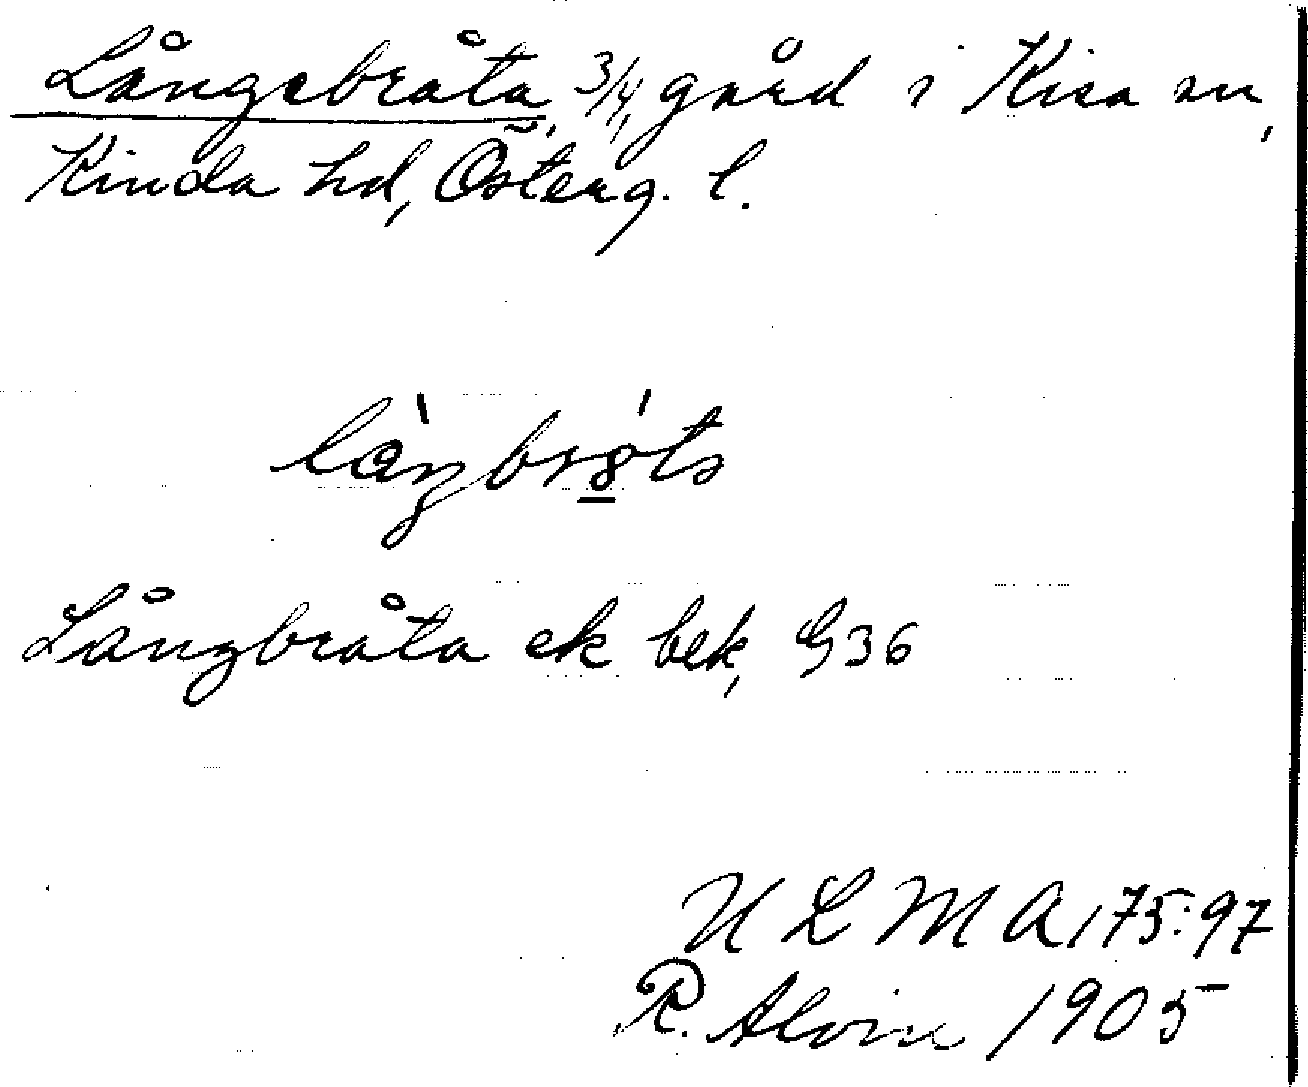 Långebråta, 3/4, gård i Kisa sn,
Kinda hd, Österg. l.
Långbråta ek bek, G36
ULMA 175:97
R. Alvin 1905